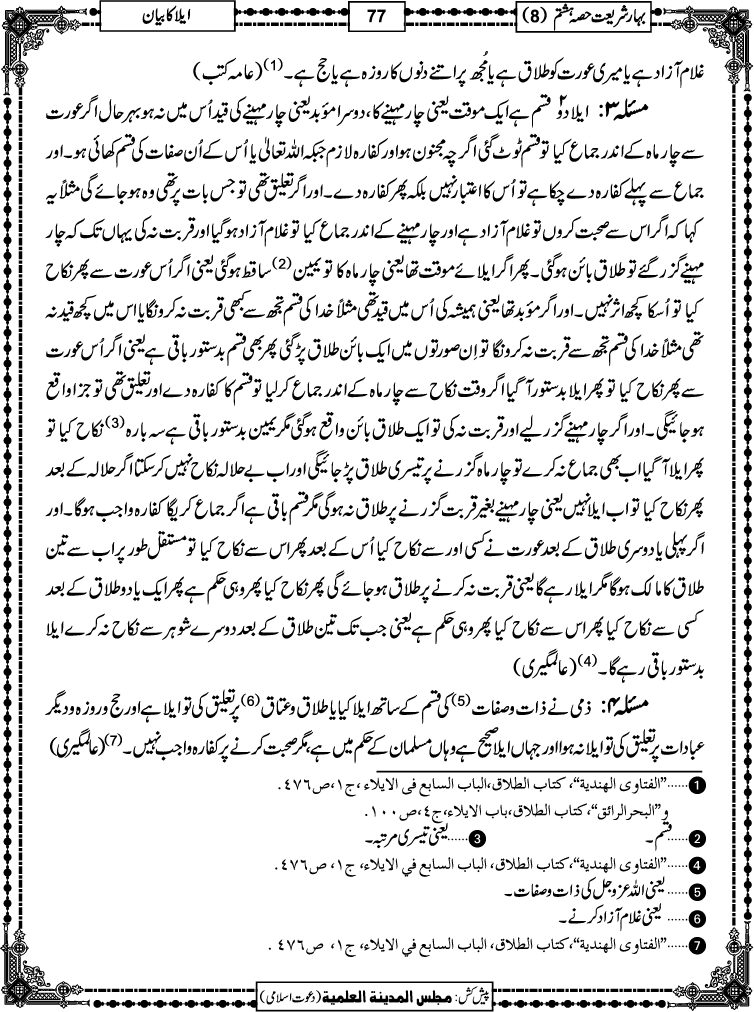 بہارِ شریعت حصہ ہشتم (8)
77
ایلا کا بیان
غلام آزاد ہے یا میری عورت کو طلاق ہے یا مُجھ پر اتنے دنوں کا روزہ ہے یا حج ہے۔(1) (عامہ کتب)
مسئلہ ۳: ایلا دو۲ قسم ہے ایک موقت یعنی چار مہینے کا، دوسرا مؤبد یعنی چار مہینے کی قید اُس میں نہ ہو بہر حال اگر عورت
سے چار ماہ کے اندر جماع کیا تو قسم ٹوٹ گئی اگرچہ مجنون ہو اور کفارہ لازم جبکہ اللہ تعالیٰ یا اُس کے اُن صفات کی قسم کھائی ہو۔ اور
جماع سے پہلے کفارہ دے چکا ہے تو اُس کا اعتبار نہیں بلکہ پھر کفارہ دے۔ اور اگر تعلیق تھی تو جس بات پر تھی وہ ہو جائے گی مثلاً یہ
کہا کہ اگر اس سے صحبت کروں تو غلام آزاد ہے اور چار مہینے کے اندر جماع کیا تو غلام آزاد ہوگیا اور قربت نہ کی یہاں تک کہ چار
مہینے گزر گئے تو طلاق بائن ہوگئی۔ پھر اگر ایلائے موقت تھا یعنی چار ماہ کا تو یمین(2) ساقط ہوگئی یعنی اگر اُس عورت سے پھر نکاح
کیا تو اُسکا کچھ اثر نہیں۔ اور اگر مؤبد تھا یعنی ہمیشہ کی اُس میں قید تھی مثلاً خدا کی قسم تجھ سے کبھی قربت نہ کرونگا یا اس میں کچھ قید نہ
تھی مثلاً خدا کی قسم تجھ سے قربت نہ کرونگا تو اِن صورتوں میں ایک بائن طلاق پڑ گئی پھر بھی قسم بدستور باقی ہے یعنی اگر اُس عورت
سے پھر نکاح کیا تو پھر ایلا بدستور آگیا اگر وقت نکاح سے چار ماہ کے اندر جماع کرلیا تو قسم کا کفارہ دے اور تعلیق تھی تو جزا واقع
ہوجائیگی۔ اور اگر چار مہینے گزر لیے اور قربت نہ کی تو ایک طلاق بائن واقع ہوگئی مگر یمین بدستور باقی ہے سہ بارہ(3) نکاح کیا تو
پھر ایلا آگیا اب بھی جماع نہ کرے تو چار ماہ گزرنے پر تیسری طلاق پڑجائیگی اور اب بے حلالہ نکاح نہیں کرسکتا اگر حلالہ کے بعد
پھر نکاح کیا تو اب ایلا نہیں یعنی چار مہینے بغیر قربت گزرنے پر طلاق نہ ہوگی مگر قسم باقی ہے اگر جماع کریگا کفارہ واجب ہوگا۔ اور
اگر پہلی یا دوسری طلاق کے بعد عورت نے کسی اور سے نکاح کیا اُس کے بعد پھر اس سے نکاح کیا تو مستقل طور پر اب سے تین
طلاق کا مالک ہوگا مگر ایلا رہے گا یعنی قربت نہ کرنے پر طلاق ہوجائے گی پھر نکاح کیا پھر وہی حکم ہے پھر ایک یا دو طلاق کے بعد
کسی سے نکاح کیا پھر اس سے نکاح کیا پھر وہی حکم ہے یعنی جب تک تین طلاق کے بعد دوسرے شوہر سے نکاح نہ کرے ایلا
بدستور باقی رہے گا۔(4) (عالمگیری)
مسئلہ ۴: ذمی نے ذات و صفات(5) کی قسم کے ساتھ ایلا کیا یا طلاق و عتاق(6) پر تعلیق کی تو ایلا ہے اور حج و روزہ و دیگر
عبادات پر تعلیق کی تو ایلا نہ ہوا اور جہاں ایلا صحیح ہے وہاں مسلمان کے حکم میں ہے، مگر صحبت کرنے پر کفارہ واجب نہیں۔(7) (عالمگیری)
1......"الفتاوى الهندية"، كتاب الطلاق،الباب السابع في الايلاء ،ج١،ص٤٧٦.
و"البحرالرائق"، كتاب الطلاق،باب الايلاء،ج٤،ص١٠٠.
2......قسم۔ 3......یعنی تیسری مرتبہ۔
4......"الفتاوى الهندية"،كتاب الطلاق، الباب السابع في الايلاء، ج١، ص٤٧٦.
5......یعنی اللہ عزوجل کی ذات و صفات۔
6......یعنی غلام آزاد کرنے۔
7......"الفتاوى الهندية"،كتاب الطلاق، الباب السابع في الايلاء، ج١، ص٤٧٦.
پیش کش: مجلس المدينة العلمية (دعوتِ اسلامی)